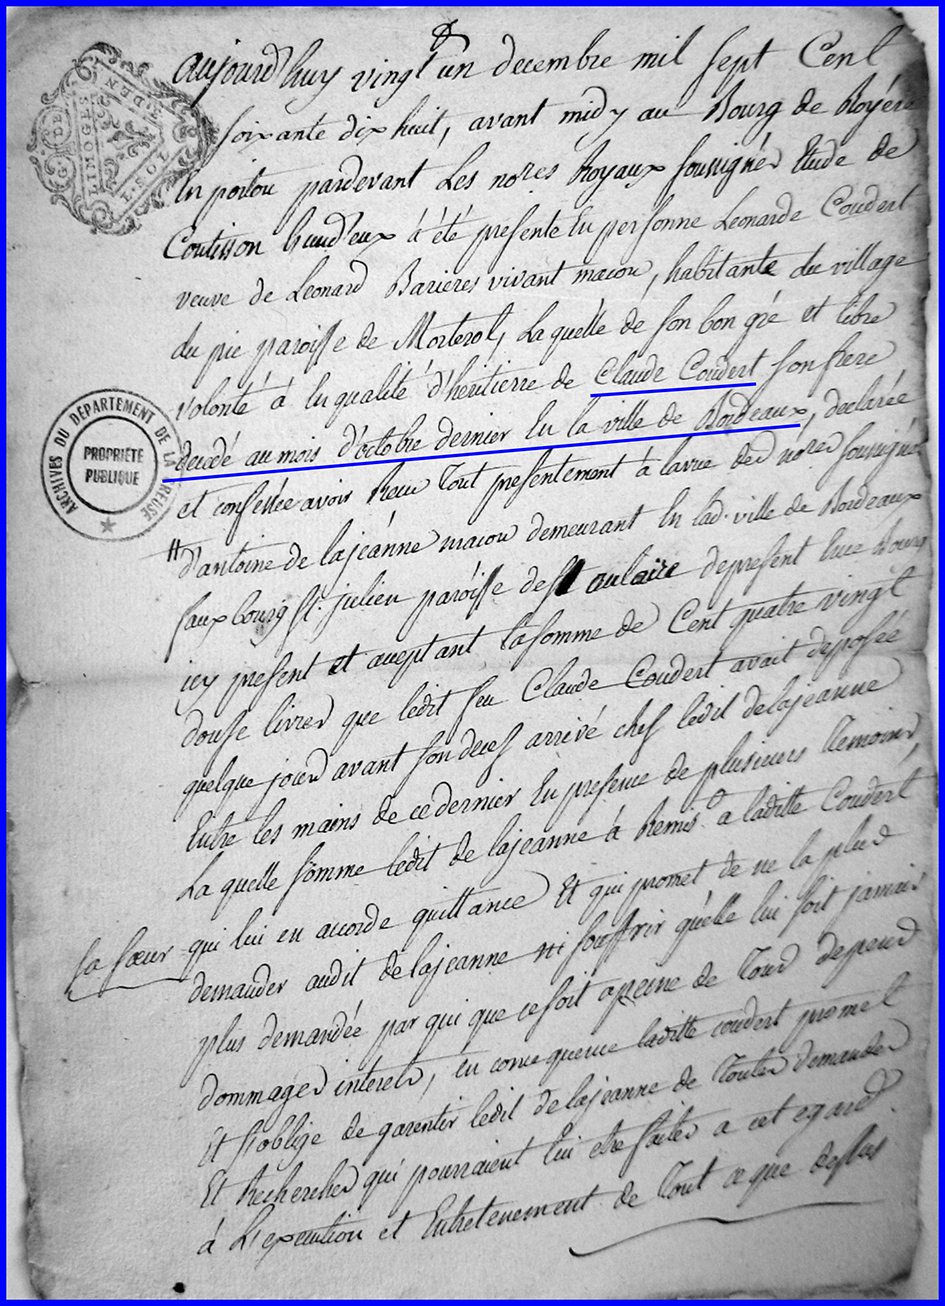 G. DE
LIMOGES
DEN.
ARCHIVES DU DÉPARTEMENT DE LA CREUSE
PROPRIÉTÉ
PUBLIQUE
aujourd'huy vingt un decembre mil sept Cent
soixante dix huit, avant midy au Bourg de Royére
En poitou pardevant Les no.res Royaux soussignés Etude de
Coutisson L'un d'eux à été presente En personne Leonarde Coudert
veuve de Leonard Barieres vivant macon, habitante du village
du pic paroisse de Morterol, La quelle de son bon gré et libre
volonté à la qualité d'héritierre de Claude Coudert son frere
decedé au mois d'octobre dernier En la ville de Bordeaux, declarée
et confessée avoir Receu Tout presentement à la vue des no.res soussignés
d'antoine de lajeanne macon demeurant En lad. ville de Bordeaux
faux bourg St. julien paroisse de St aulaire depresent
icy present et aceptant la somme de Cent quatre vingt
douse livres que ledit feu Claude Coudert avait deposée
quelque jours avant son deces arrivé chef ledit delajeanne
Entre les mains de ce dernier En presence de plusieurs Temoins,
La quelle somme ledit de lajeanne à Remis a laditte Coudert
sa sœur qui lui en accorde quittance Et qui promet de ne la plus
demander audit delajeanne ni souffrir qu'elle lui soit jamais
plus demandée par qui que ce soit a peine de Tous depens
dommages interets, en consequence laditte coudert promet
Et s'oblige de garentir ledit delajeanne de Toutes demandes
Et Recherches qui pourraient lui etre faites a cet egard.
à L'execution et Entretenement de Tout ce que dessus